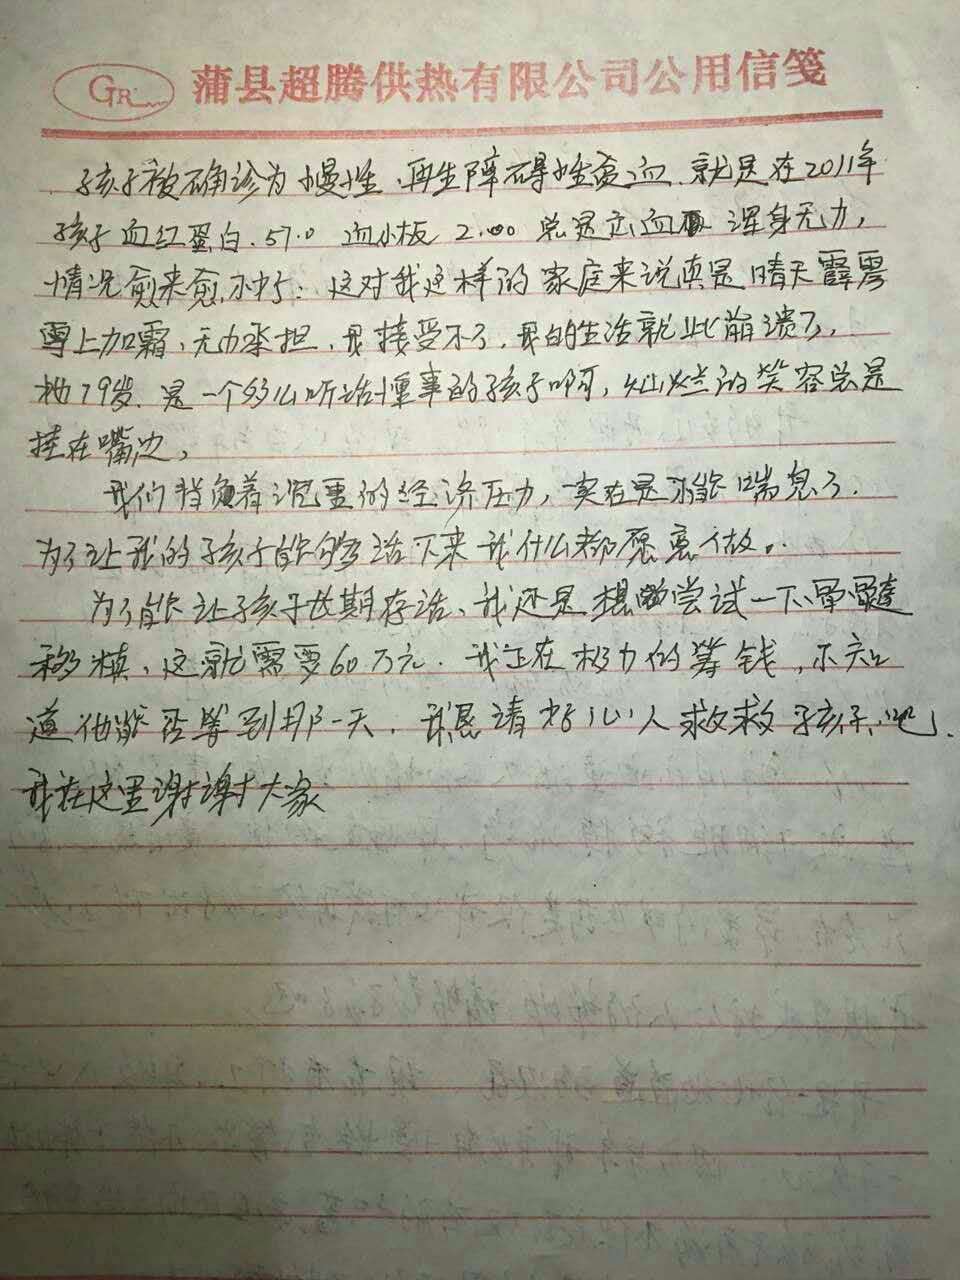 GR
蒲县超腾供热有限公司公用信笺
孩子被确诊为慢性.再生障碍性贫血.就是在2011年
孩子血红蛋白.57.0 血小板 2.00 总是出血 浑身无力,
情况愈来愈不好:这对我这样的家庭来说真是晴天霹雳
雪上加霜、无力承担,我接受不了,我的生活就此崩溃了,
他19岁.是一个多么听话懂事的孩子啊,灿烂的笑容总是
挂在嘴边,
我们背负着沉重的经济压力,实在是不能喘息了.
为了让我的孩子能够活下来我什么都愿意做。
为了能让孩子长期存活、我还是想尝试一下骨髓
移植、这就需要60万元.我正在极力的筹钱,不知
道他能否等到那一天.我恳请好心人救救孩子吧.
我在这里谢谢大家